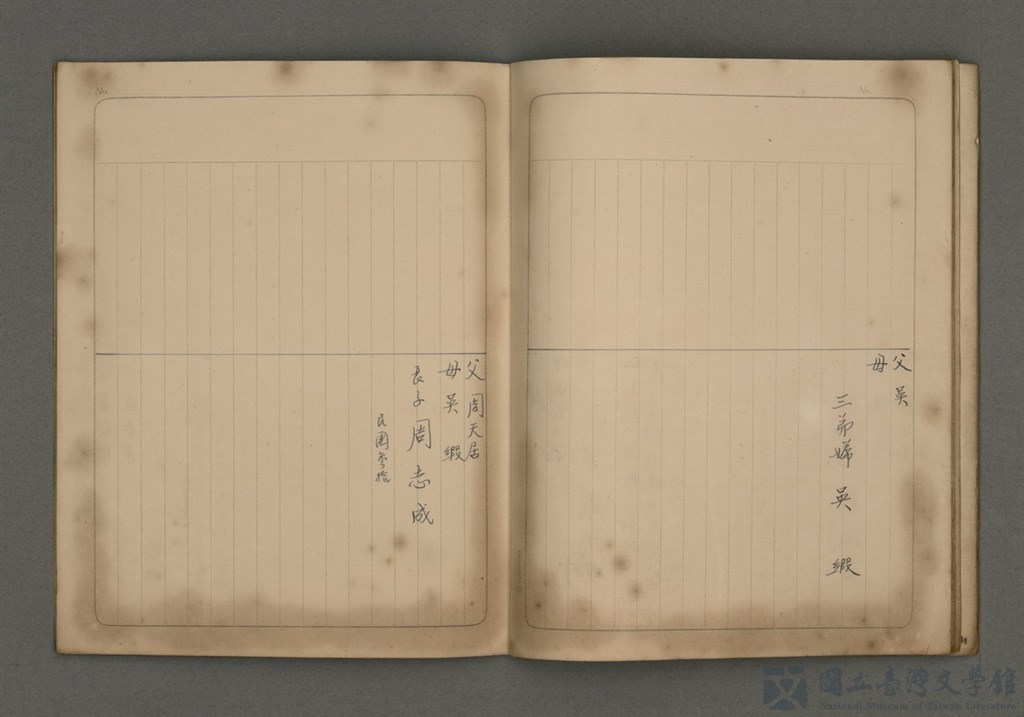 父 吳
母
三弟婦 吳 緞
父 周天居
母 吳 緞
長子 周志成
民國參拾
國立臺灣文學館
National Museum of Taiwan Literature